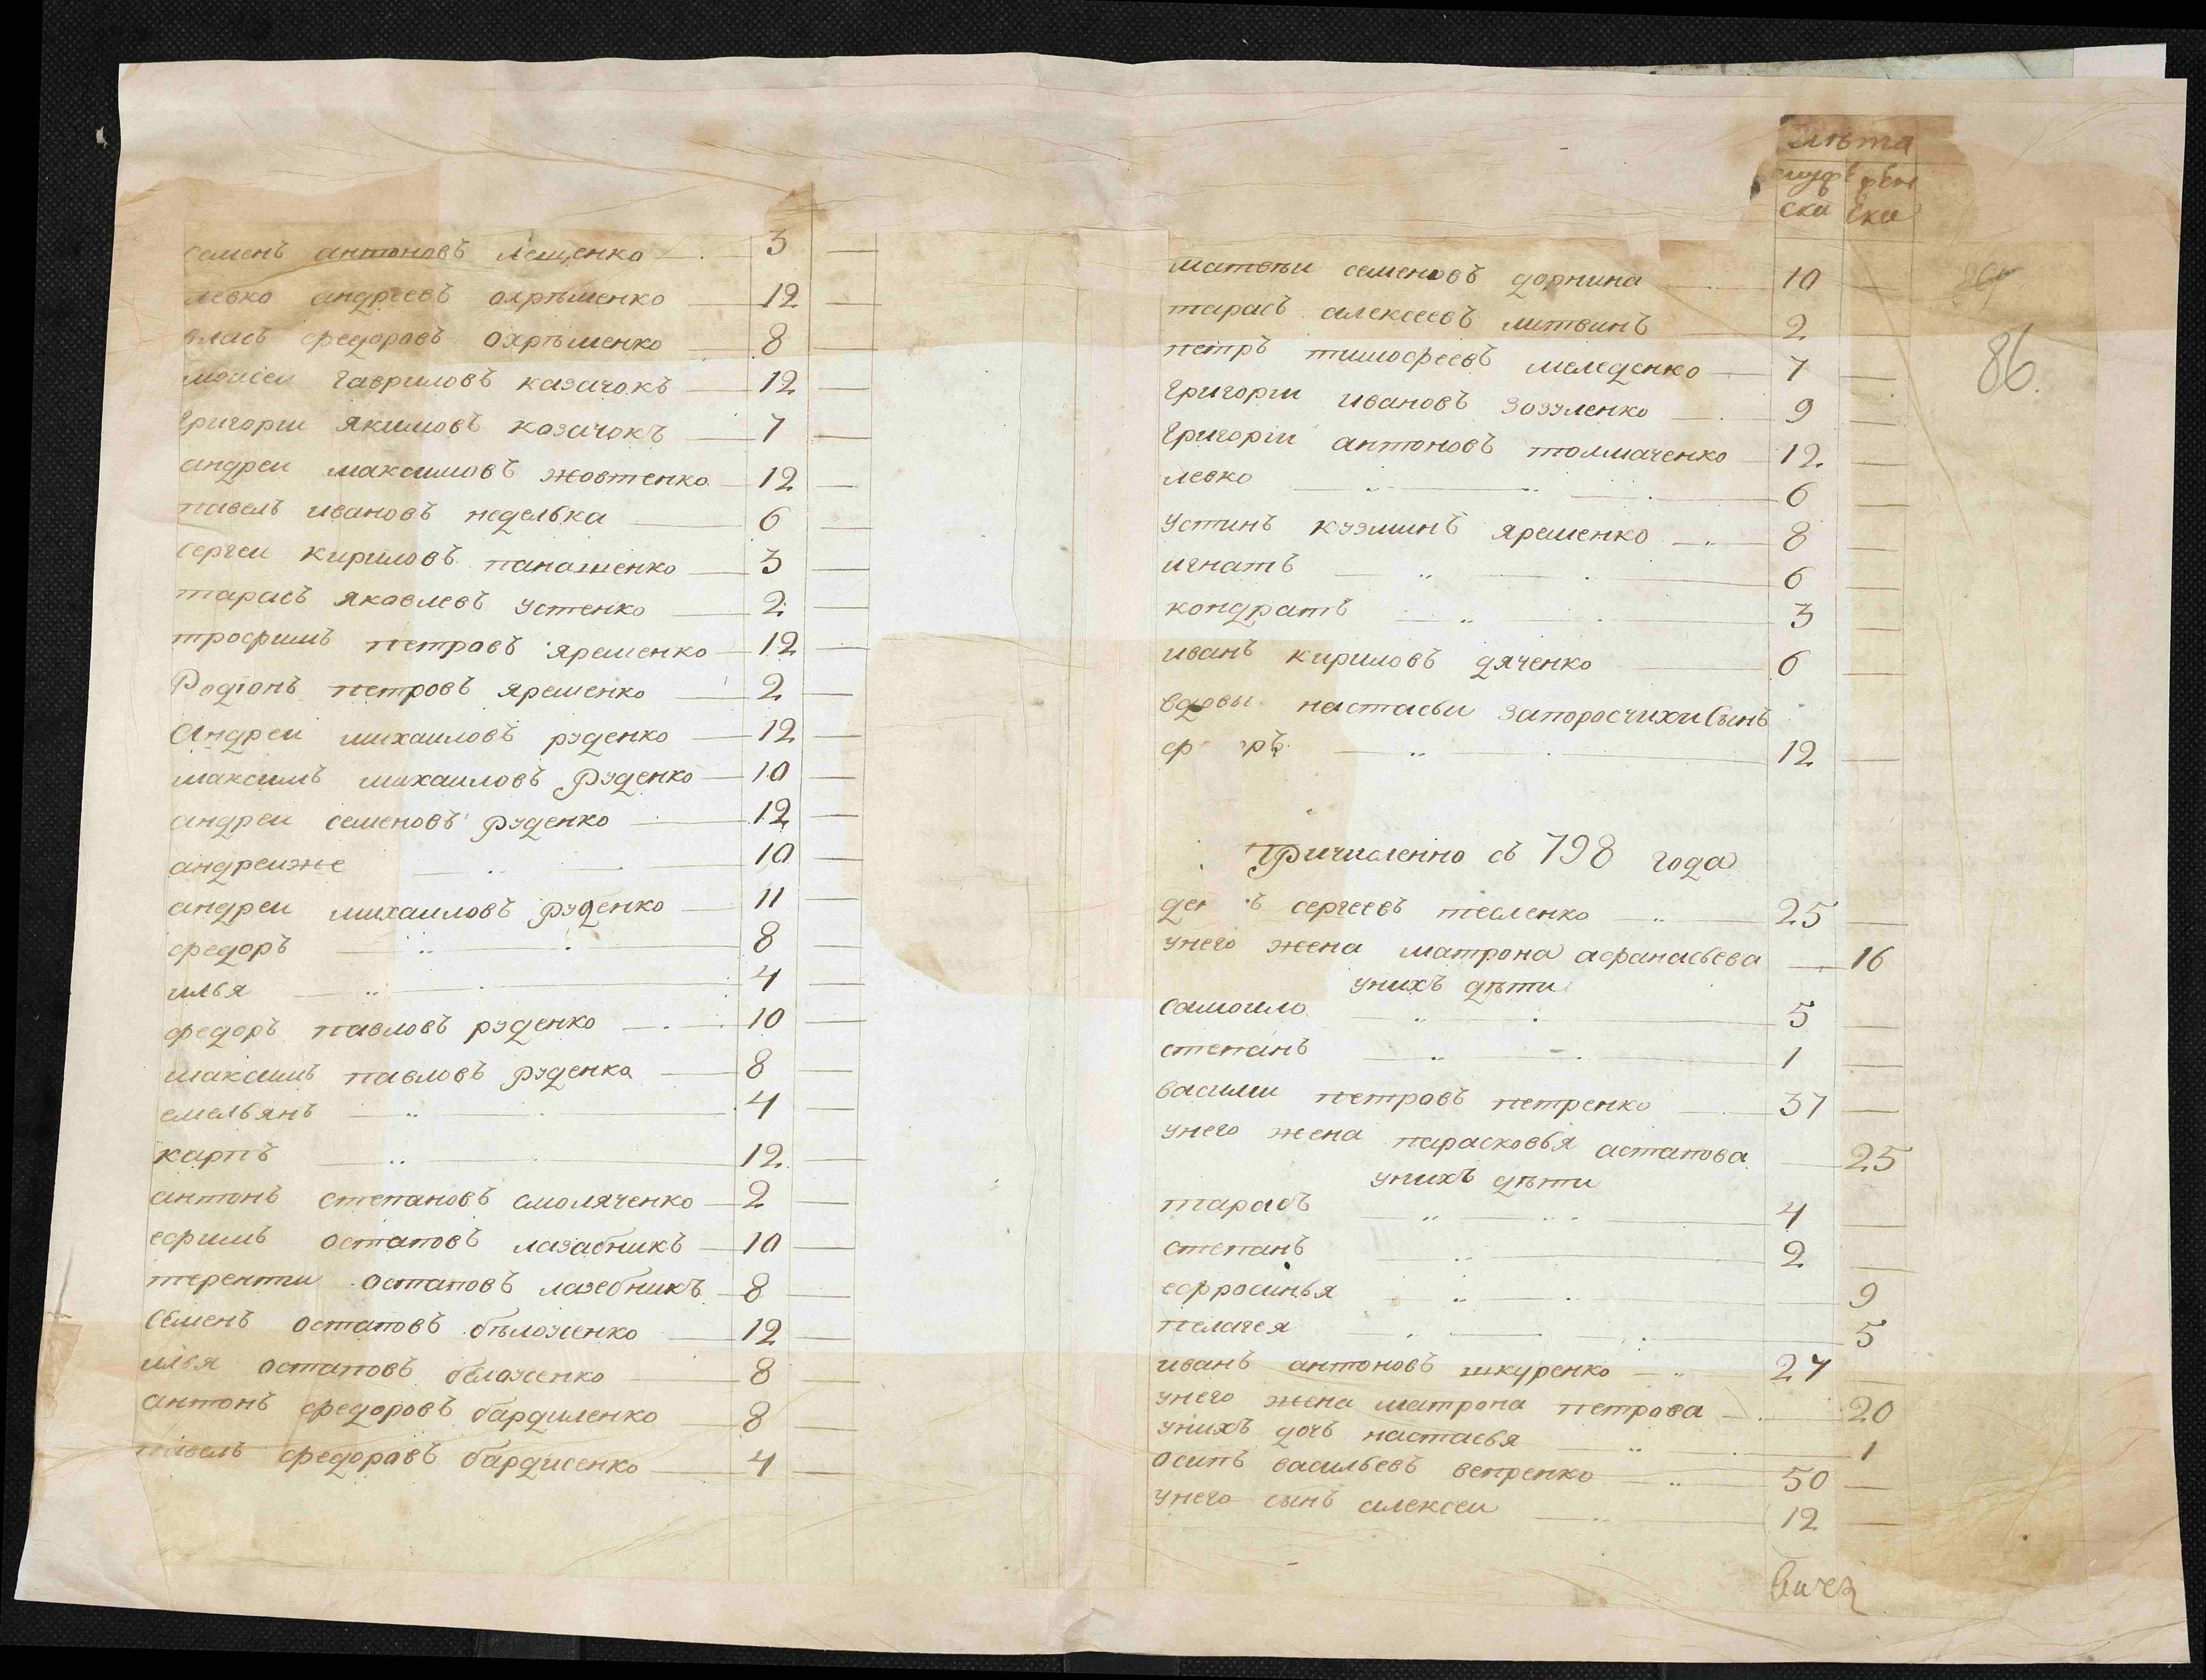 семенъ антоновъ лещенко 3 —
левко андреевъ охрѣменко 12 —
власъ федоровъ охрѣменко 8 —
моисеи гавриловъ казачокъ 12 —
григорïи якимовъ козачокъ 7 —
андреи максимовъ жовтенко 12 —
павелъ ивановъ неделька 6 —
сергеи кириловъ панашенко 3 —
тарасъ яковлевъ устенко 2 —
трофимъ петровъ яременко 12 —
Родïонъ петровъ яременко 2 —
Андреи михаиловъ руденко 12 —
максимъ михаиловъ руденко 10 —
андреи семеновъ руденко 12 —
андреиже 10 —
андреи михаиловъ руденко 11 —
федоръ 8 —
илья 4 —
федоръ павловъ руденко 10 —
максимъ павловъ руденко 8 —
емельянъ 4 —
карпъ 12 —
антонъ степановъ смоляченко 2 —
ефимъ остаповъ лазабникъ 10 —
терентïи остаповъ лазебникъ 8 —
Семенъ остаповъ бѣлоусенко 12 —
илья остаповъ белоусенко 8 —
антонъ федоровъ бардиленко 8 —
павелъ федоровъ 4 —
лѣта
муже жен
ска ска
матвѣи семеновъ дорнина 10 —
тарасъ алексеевъ литвинъ 2 —
петръ тимофеевъ меледенко 7 —
86.
григорïи ивановъ зозуленко 9 —
григорïи антоновъ толмаченко 12 —
левко 6 —
устинъ кузминъ яременко 8 —
игнатъ 6 —
кондратъ 3 —
иванъ кириловъ дяченко 6 —
вдовы настасьи запоросчихи сынъ
12 —
Причисленно съ 798 года
сергеевъ тесленко 25 —
унего жена матрона афанасьева 16
унихъ дѣти
самоило 5 —
степанъ 1 —
василïи петровъ петренко 37 —
унего жена парасковья астапова 25
унихъ дѣти
тарасъ 4 —
степанъ 2 —
ефросинья 9
пелагея 5
иванъ антоновъ шкуренко 27 —
унего жена матрона петрова 20
унихъ дочь настасья 1
осипъ васильевъ ветренко 50 —
унего сынъ алексеи 12 —